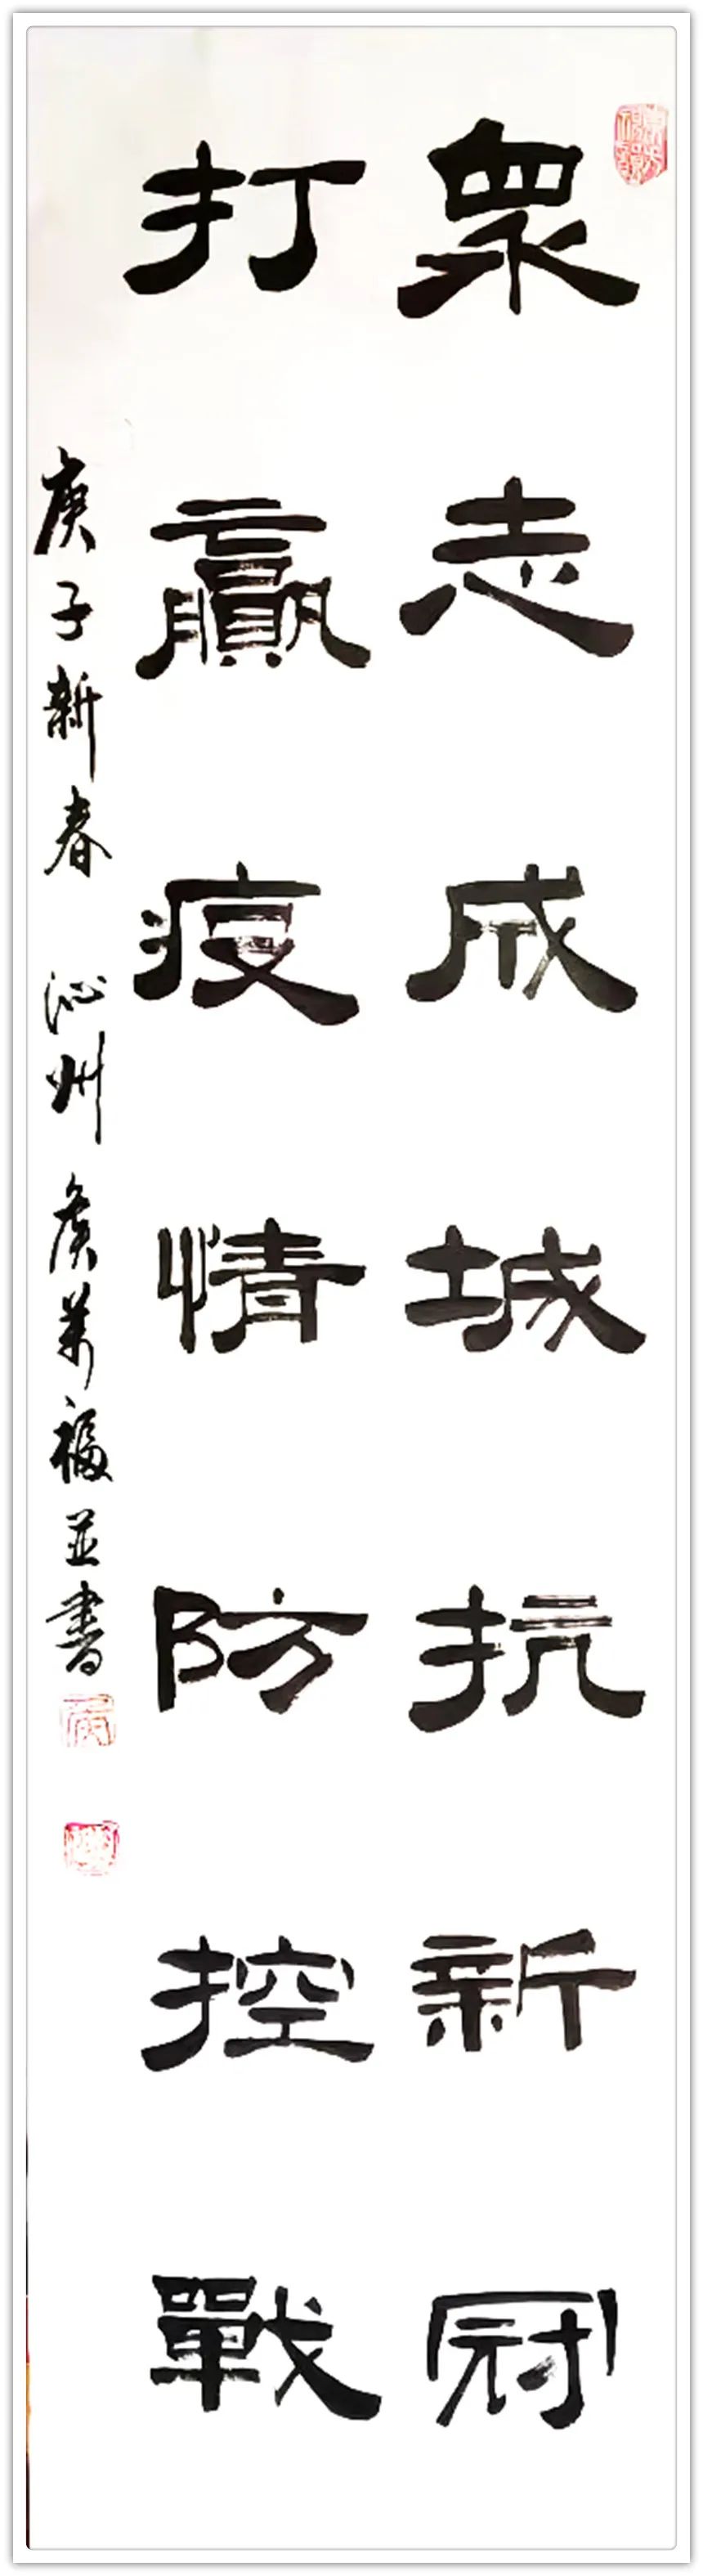 眾志成城抗新冠
打贏疫情防控戰
庚子新春 沁州侯萬福並書